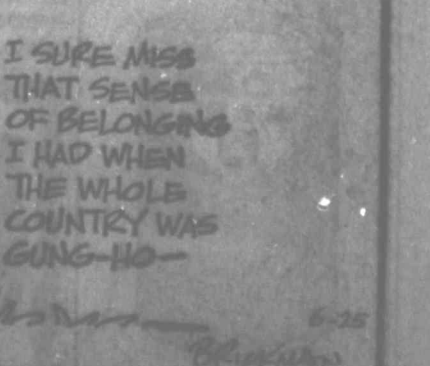 I SURE MISS
THAT SENSE
OF BELONGING
I HAD WHEN
THE WHOLE
COUNTRY WAS
GUNG-HO—
6-25
BRICKMAN